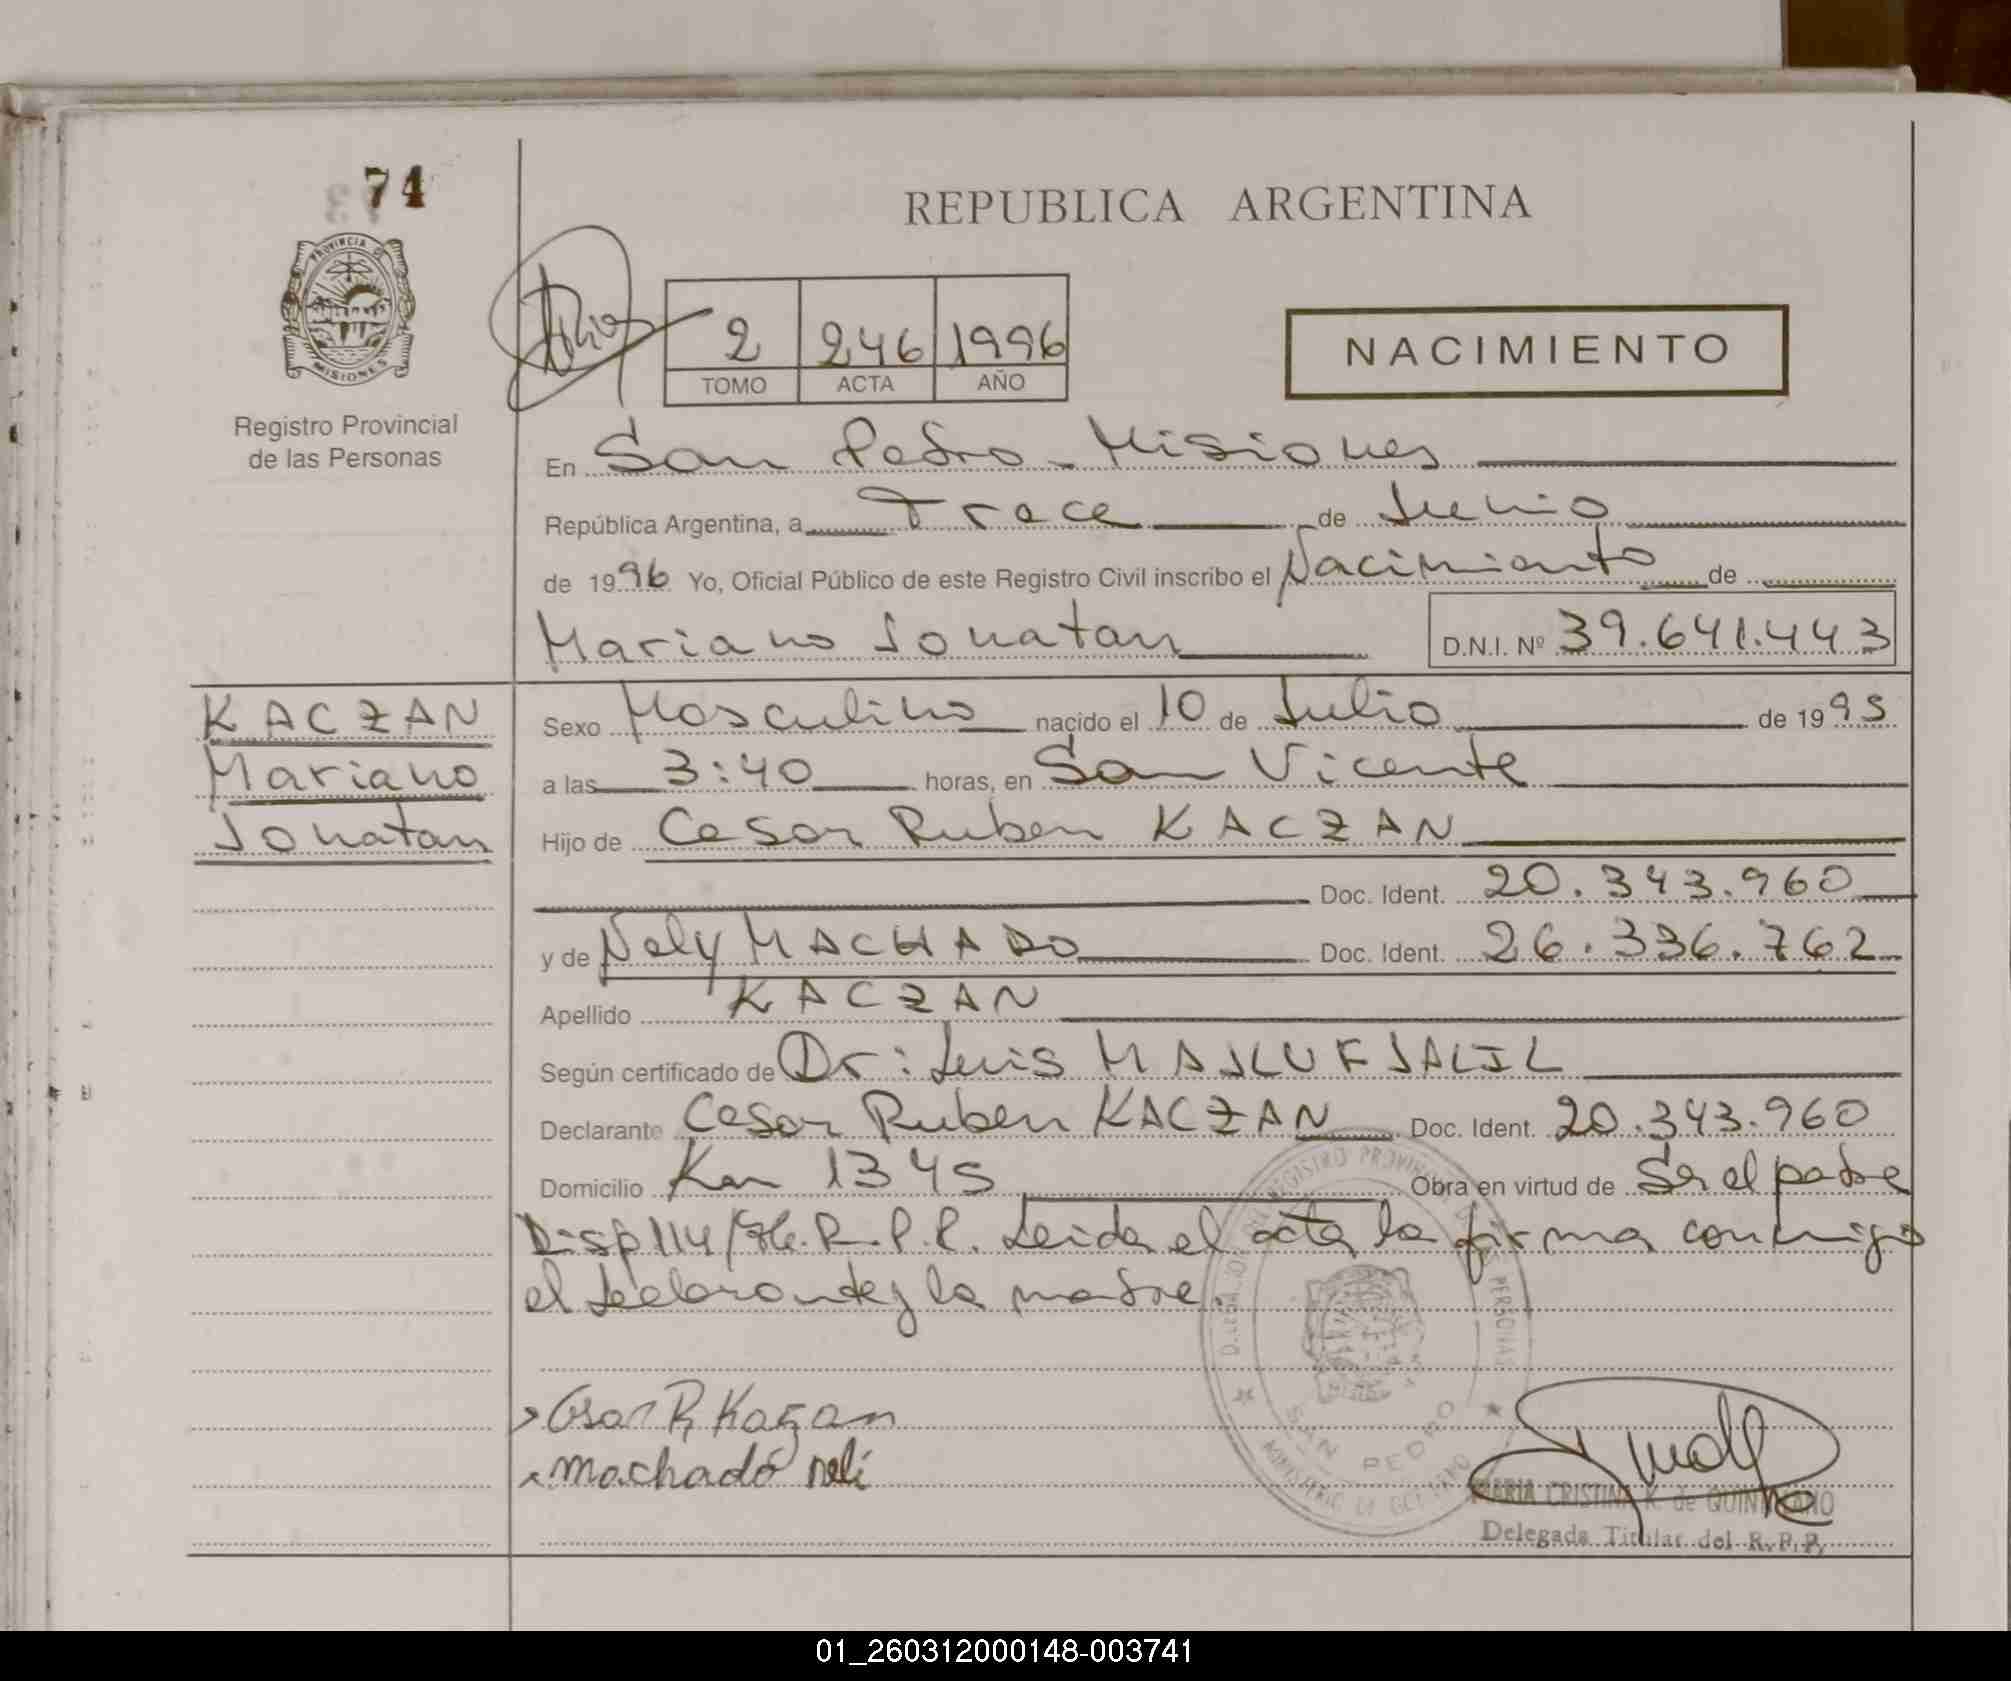 74
REPUBLICA ARGENTINA
PROVINCIA DE MISIONES
Registro Provincial
de las Personas
2 246 1996
TOMO ACTA AÑO
NACIMIENTO
En San Pedro - Misiones
República Argentina, a Trece de Junio
de 1996 Yo, Oficial Público de este Registro Civil inscribo el Nacimiento de
Mariano Jonatan D.N.I. Nº 39.641.443
KACZAN
Mariano
Jonatan
Sexo Masculino nacido el 10 de Julio de 1995
a las 3:40 horas, en San Vicente
Hijo de Cesar Ruben KACZAN
Doc. Ident. 20.343.960
y de Nely MACHADO Doc. Ident. 26.336.762
Apellido KACZAN
Según certificado de Dr: Luis MAJLUF JALIL
Declarante Cesar Ruben KACZAN Doc. Ident. 20.343.960
Domicilio Km 1345 Obra en virtud de Ser el padre
Disp 114/96. R.P.P. Leida el acta la firma conmigo
el declarante y la madre.
Cesar R. Kazan
machado neli
SAN PEDRO
MARIA CRISTINA K. de QUINTANO
Delegada Titular del R.P.P.
01_260312000148-003741